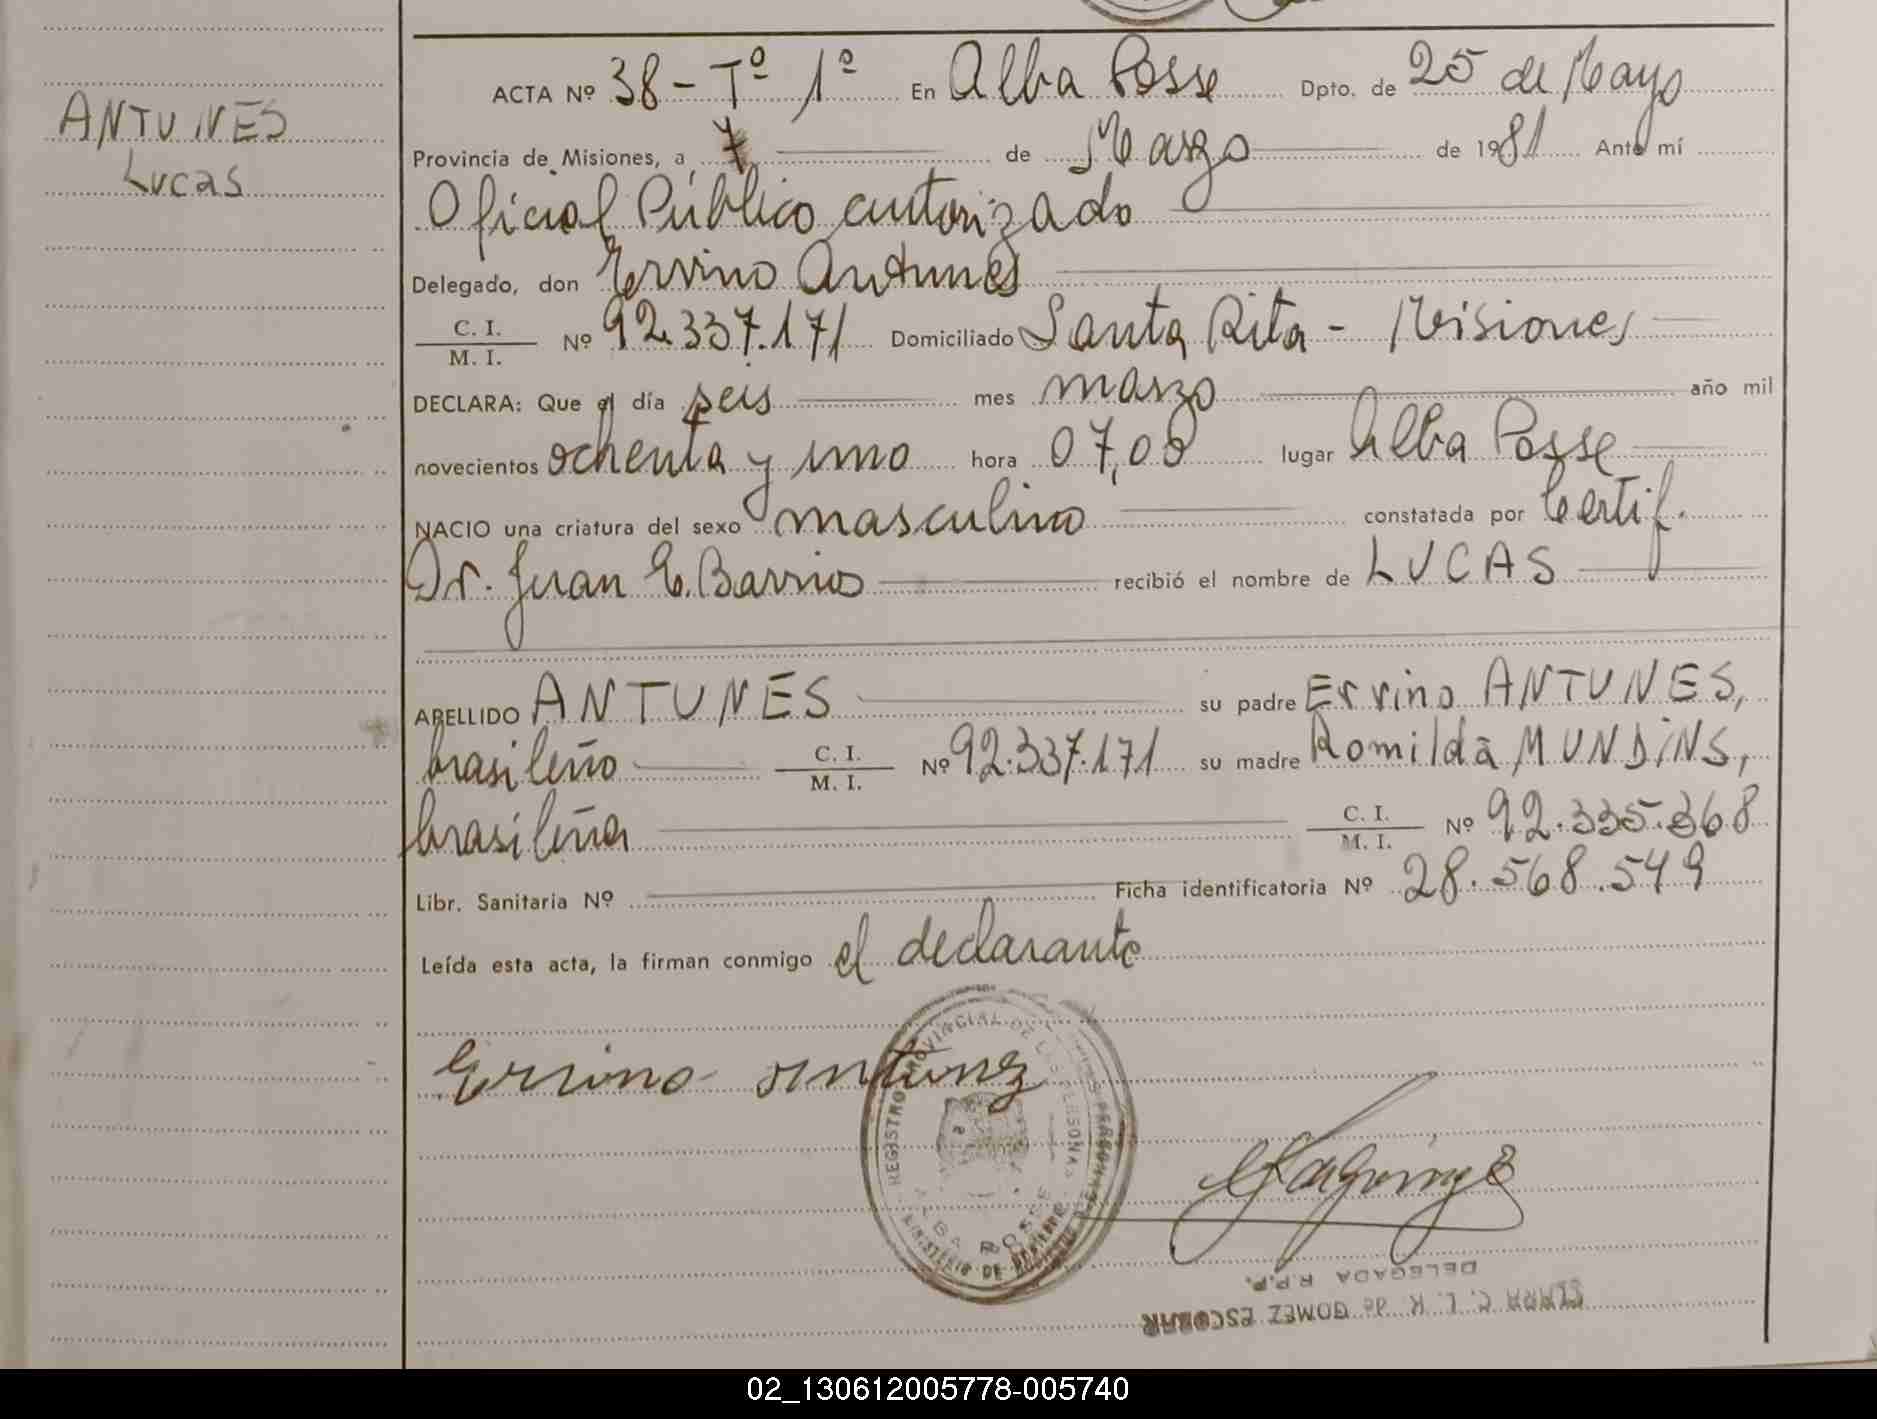 ANTUNES
Lucas
ACTA Nº 38 - Tº 1º En Alba Posse Dpto. de 25 de Mayo
Provincia de Misiones, a 7 de Marzo de 1981 Ante mí
Oficial Público autorizado
Delegado, don Ervino Antunes
C. I.
M. I. Nº 92.337.171 Domiciliado Santa Rita - Misiones
DECLARA: Que el día seis mes marzo año mil
novecientos ochenta y uno hora 07,00 lugar Alba Posse
NACIO una criatura del sexo masculino constatada por Certif.
Dr. Juan E. Barrios recibió el nombre de LUCAS
APELLIDO ANTUNES su padre Ervino ANTUNES,
brasileño C. I. M. I. Nº 92.337.171 su madre Romilda MUNDINS,
brasileña C. I. M. I. Nº 92.335.368
Libr. Sanitaria Nº Ficha identificatoria Nº 28.568.549
Leída esta acta, la firman conmigo el declarante
Ervino Antunez
REGISTRO PROVINCIAL DE LAS PERSONAS
ALBA POSSE
MINISTERIO DE GOBIERNO
CLARA C. L. K. de GOMEZ ESCOBAR
DELEGADA R.P.P.
02_130612005778-005740